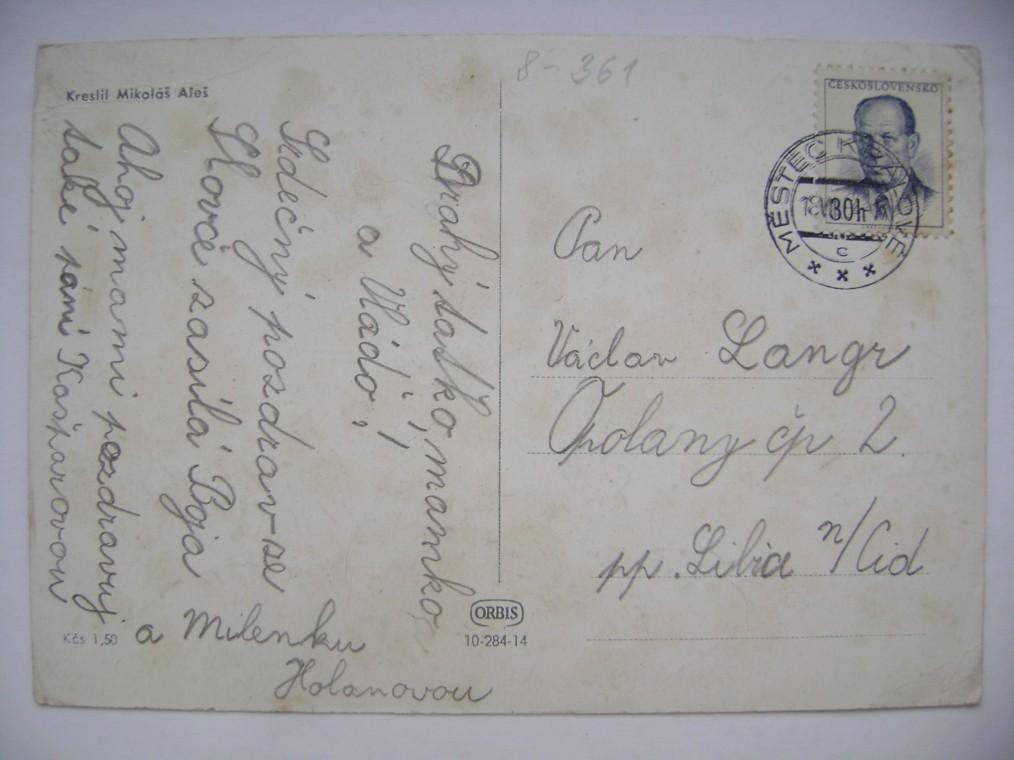 8-361
Kreslil Mikoláš Aleš
ČESKOSLOVENSKO
30h
MĚSTEC KRÁLOVÉ
C
Drahý taťko, mamko,
a Vládo!
Srdečný pozdrav se
zasílá
Ahoj mami pozdravuj
také paní Kašparovou
a Milenku
Holanovou
Pan
Václav Langr
Opolany čp 2.
pp. Libice n/Cid
ORBIS
10-284-14
Kčs 1,50